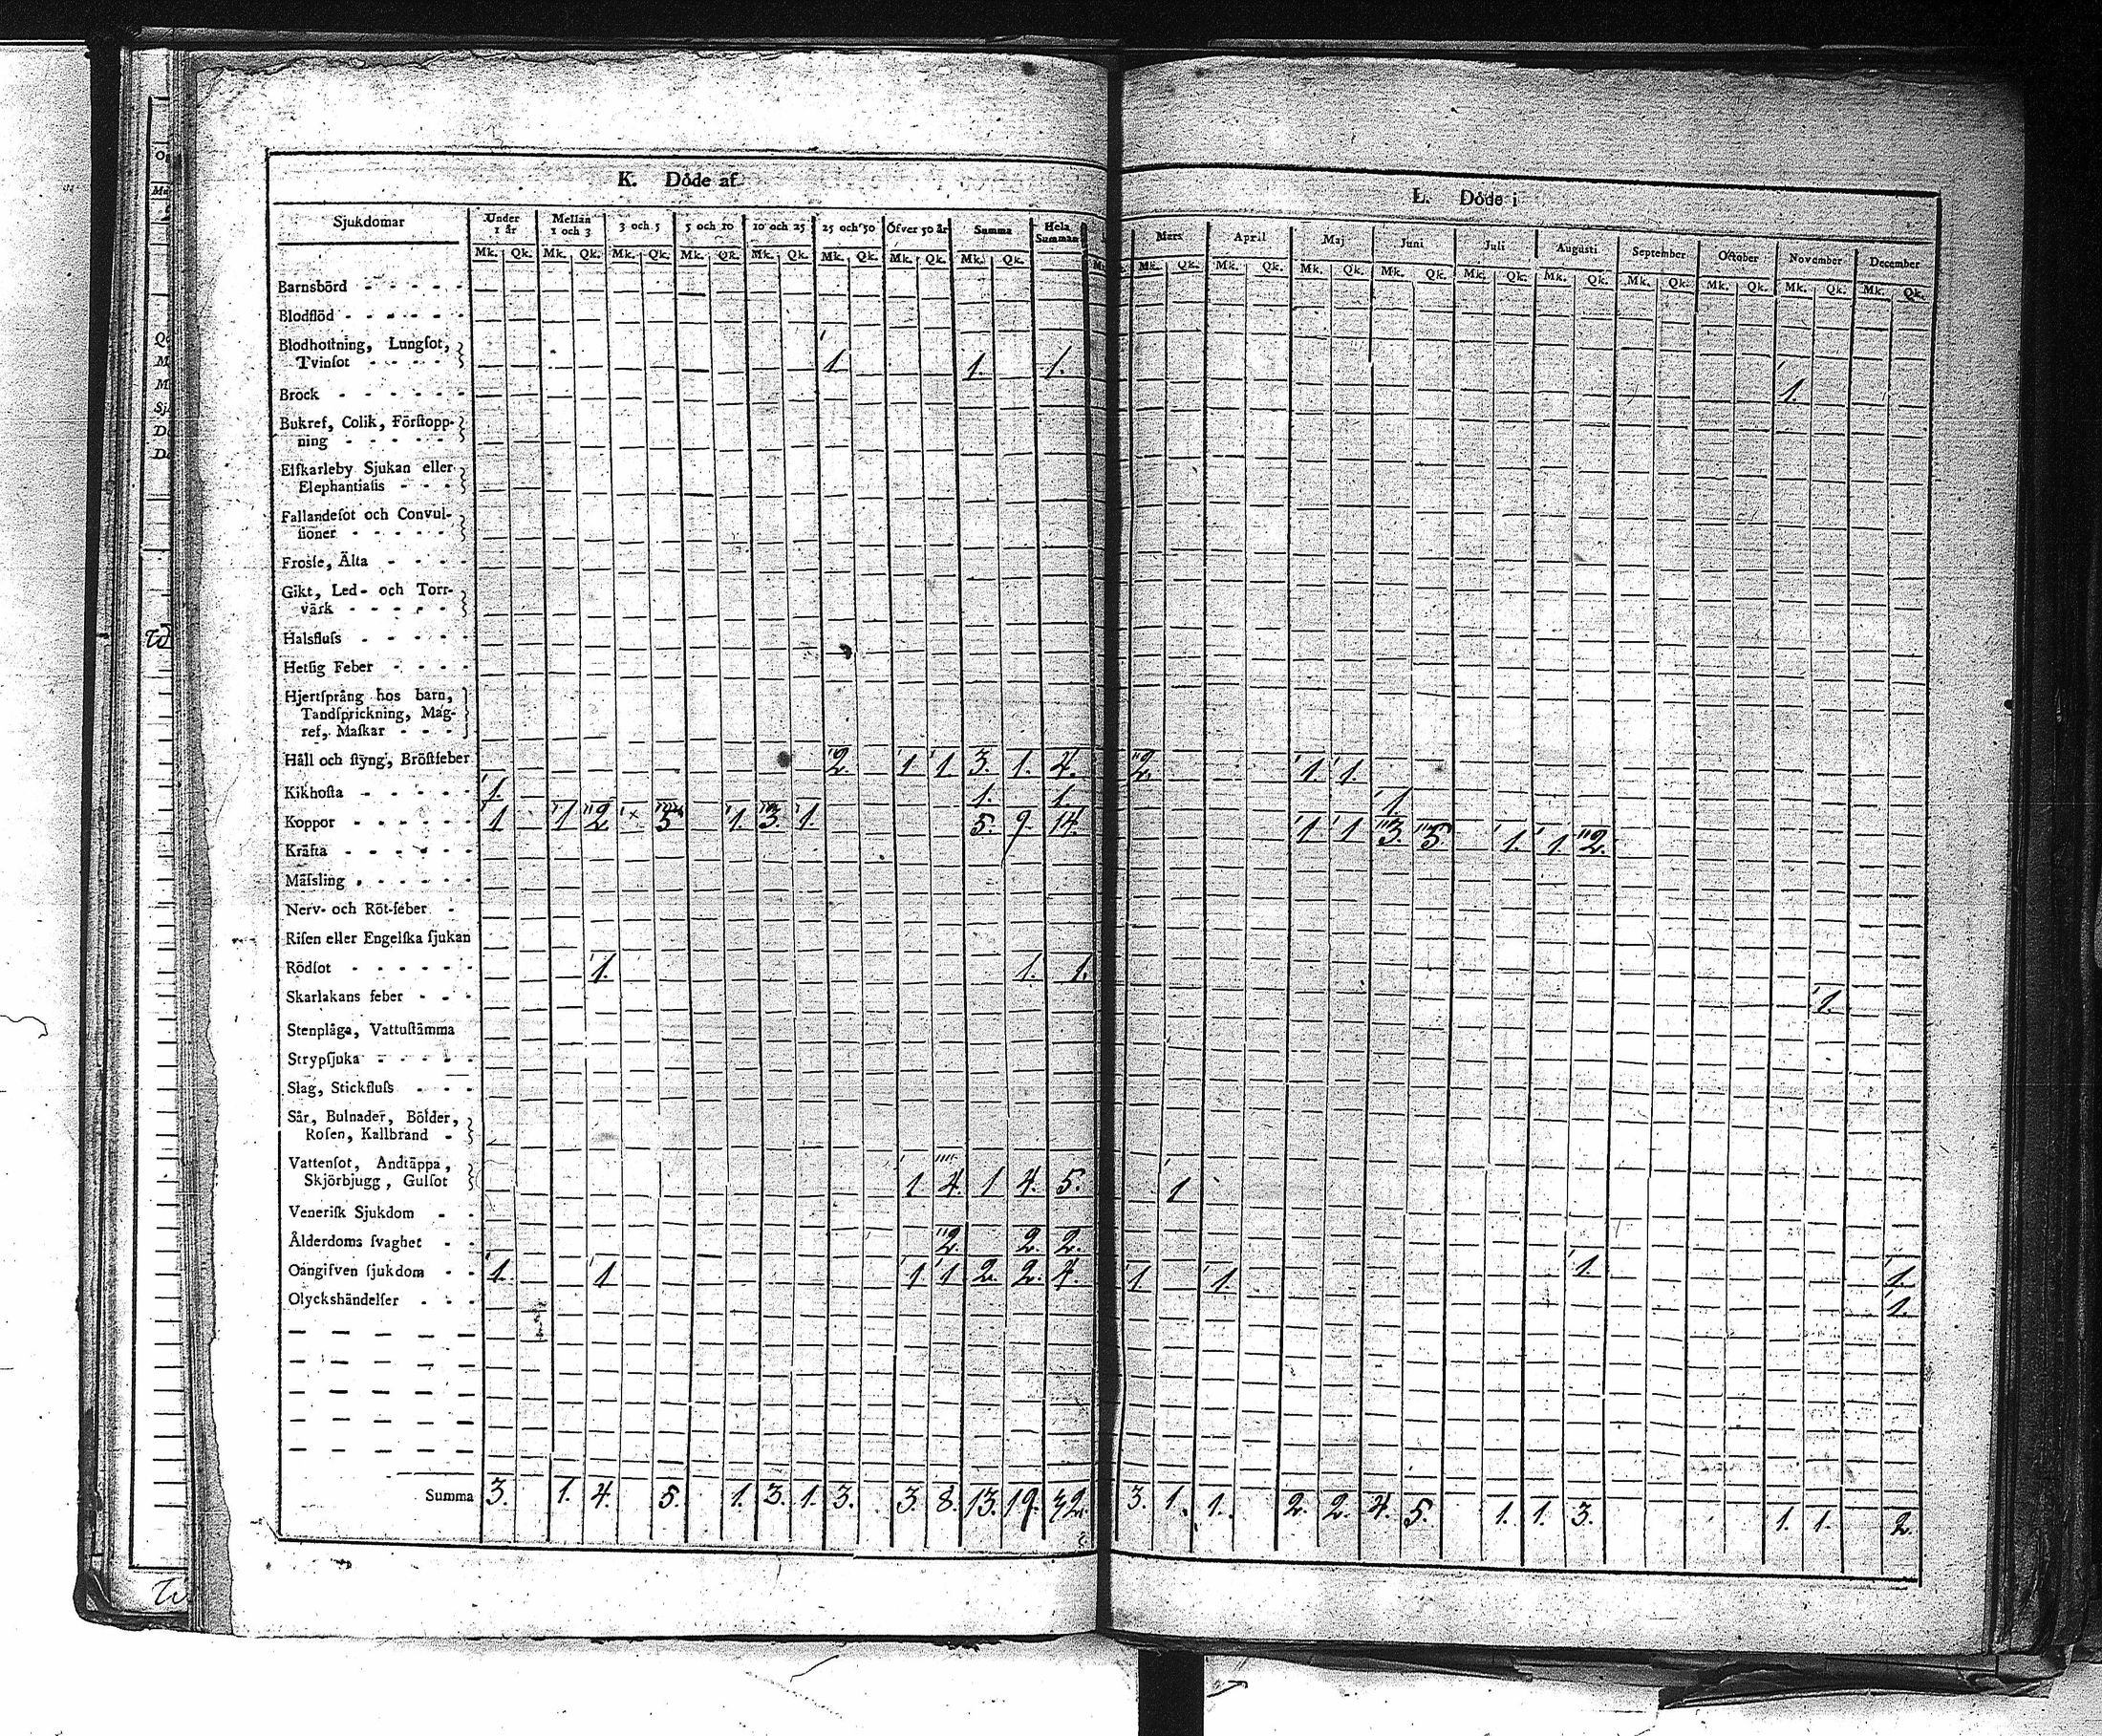 K. Döde af
L. Döde i
Sjukdomar Under 1 år Mellan 1 och 3 3 och 5 5 och 10 10 och 25 25 och 50 Öfver 50 år Summa Hela Summan
Mars April Maj Juni Juli Augusti September October November December
Mk. Qk. Mk. Qk. Mk. Qk. Mk. Qk. Mk. Qk. Mk. Qk. Mk. Qk. Mk. Qk.
Mk. Qk. Mk. Qk. Mk. Qk. Mk. Qk. Mk. Qk. Mk. Qk. Mk. Qk. Mk. Qk. Mk. Qk. Mk. Qk.
Barnsbörd - - - - -
Blodflöd - - - - - -
Blodhoſtning, Lungſot,
Tvinſot - - - - 1 1. 1. 1.
Bröck - - - - - -
Bukref, Colik, Förſtopp-
ning - - - - -
Elſkarleby Sjukan eller
Elephantiaſis - - -
Fallandeſot och Convul-
ſioner - - - - -
Froſſe, Älta - - - -
Gikt, Led- och Torr-
värk - - - - -
Halsfluſs - - - - -
Hetſig Feber - - - -
Hjertſprång hos barn,
Tandſprickning, Mag-
ref, Maſkar - - -
Håll och ſtyng, Bröſtfeber 2. 1 1. 3. 1. 4. 2. 1. 1.
Kikhoſta - - - - - 1. 1. 1. 1.
Koppor - - - - - - 1 1 2 × 5 1. 3. 1. 5. 9. 14. 1 1 3. 5. 1. 1. 2.
Kräfta - - - - - -
Mäſsling - - - - - -
Nerv- och Röt-feber -
Riſen eller Engelſka ſjukan
Rödſot - - - - - - 1. 1. 1. 1.
Skarlakans feber - - -
Stenplåga, Vattuſtämma
Strypſjuka - - - - -
Slag, Stickfluſs - - -
Sår, Bulnader, Bölder,
Roſen, Kallbrand -
Vattenſot, Andtäppa,
Skjörbjugg, Gulſot 1. 4. 1 4. 5. 1
Veneriſk Sjukdom - -
Ålderdoms ſvaghet - - 2. 2. 2. 1. 1.
Oangifven ſjukdom - - 1. 1 1 1 2. 2. 4. 1 1. 1.
Olyckshändelſer - - -
Summa 3. 1. 4. 5. 1. 3. 1. 3. 3. 8. 13. 19. 32. 3. 1. 1. 2. 2. 4. 5. 1. 1. 3. 1. 1. 2.